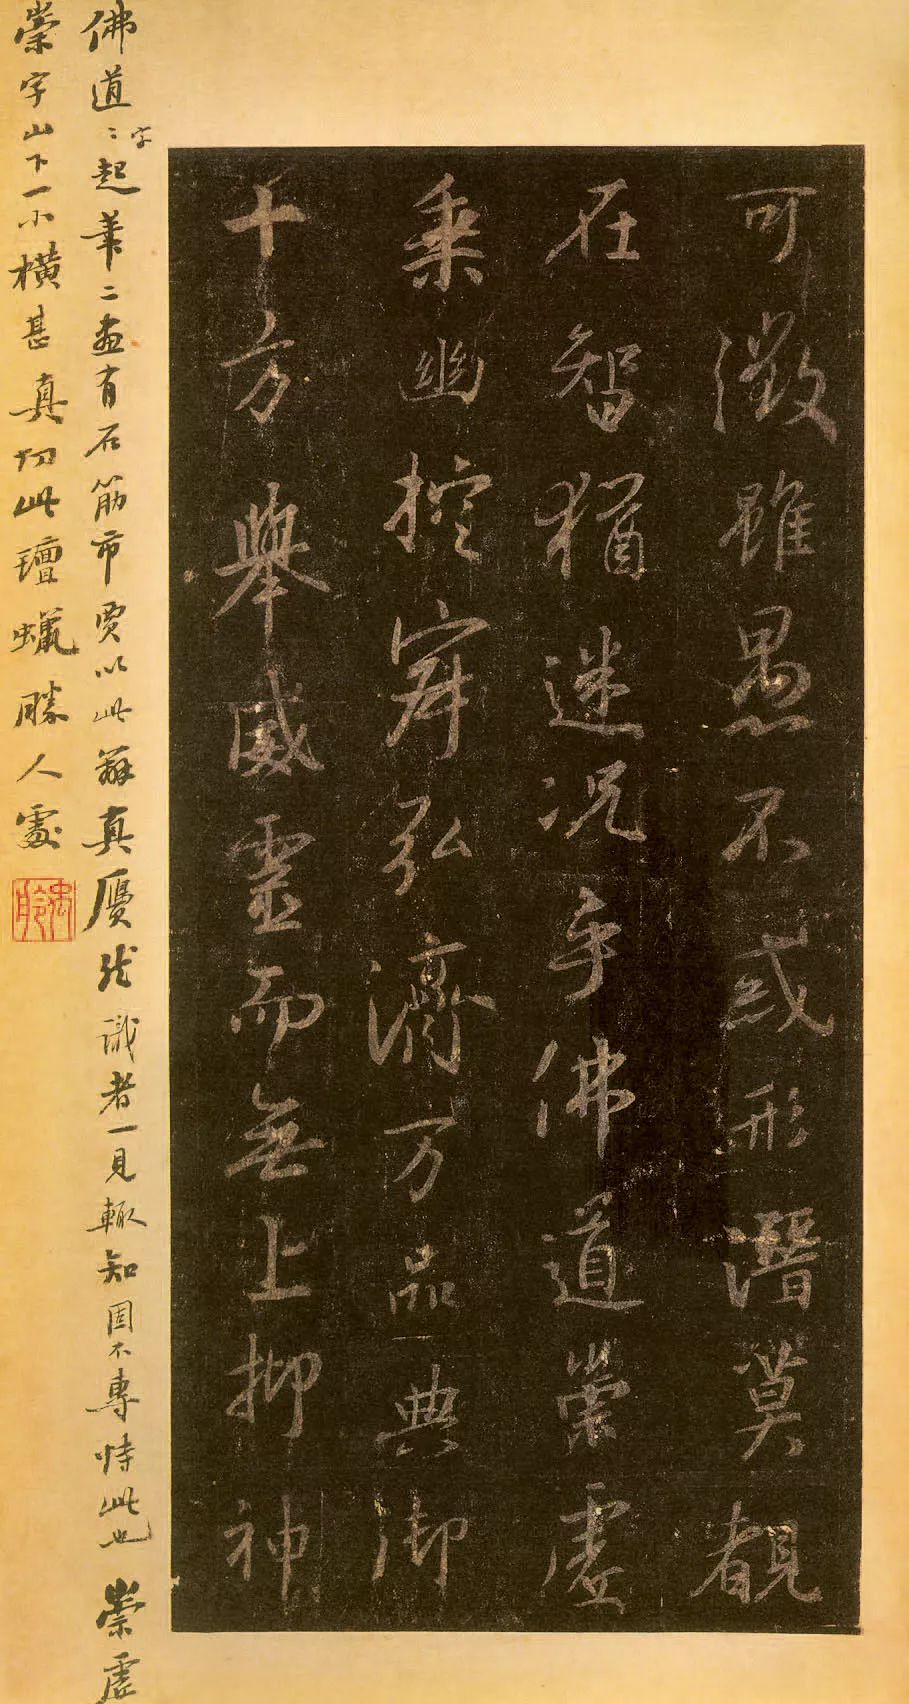 可徵雖愚不惑形潛莫覩
在智猶迷況乎佛道崇虛
乘幽控寂弘濟万品典御
十方舉威靈而無上抑神
佛道道字起筆二畫有石筋市賈以此辨真贋然識者一見輒知固不專恃此也崇虛
崇字山下一小橫甚真切此氊蠟勝人處